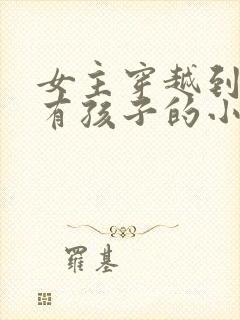 女主穿越到
有孩子的小
羅基